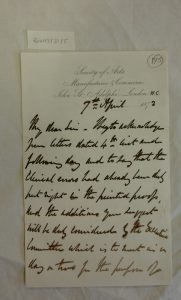 Society of Arts
Manufactures & Commerce
John St. Adelphi London W.C.
7th April 1873
My dear Sir - I beg to acknowledge
your letters dated 4th inst and
following day and to say that the
clerical error had already been duly
put right in the printed proofs,
and the additions you suggest
will be duly considered by the Executive
Committee which is to meet in a
day or two for the purpose of